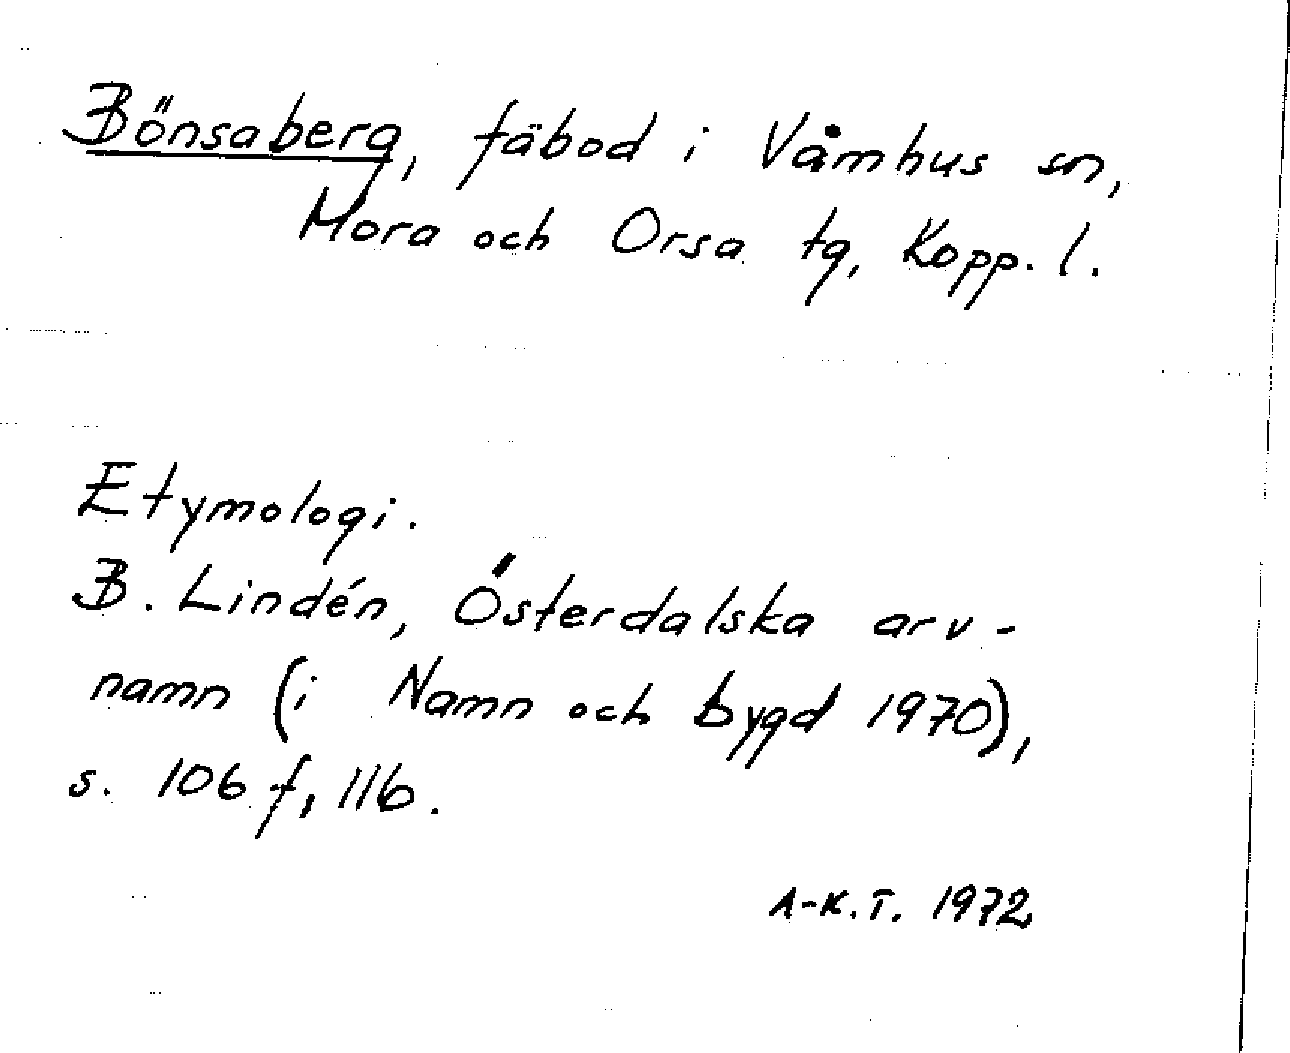 Bönsaberg, fäbod i Våmhus sn,
Mora och Orsa tg, Kopp. l.
Etymologi.
B. Lindén, Österdalska arv-
namn (i Namn och bygd 1970),
s. 106 f, 116.
A-K.T. 1972